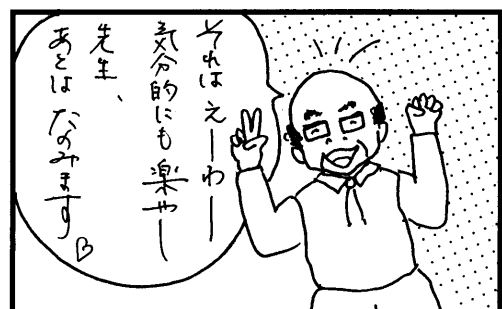 それはえーわー
気分的にも楽やし
先生、
あとはたのみます♡